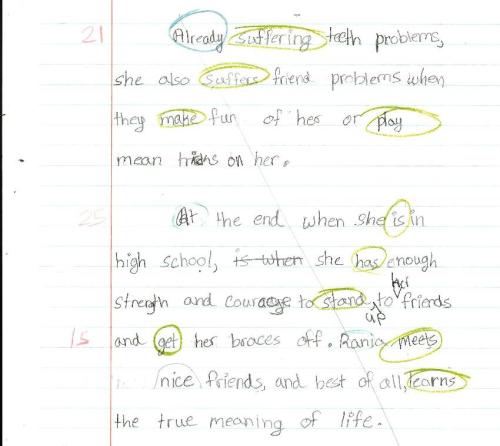 21 Already suffering teeth problems,
she also suffers friend problems when
they make fun of her or play
mean on her.
25 At the end when she is in
high school, is when she has enough
strength and courage to stand up to her friends
15 and get her braces off. Rania meets
nice friends, and best of all, learns
the true meaning of life.